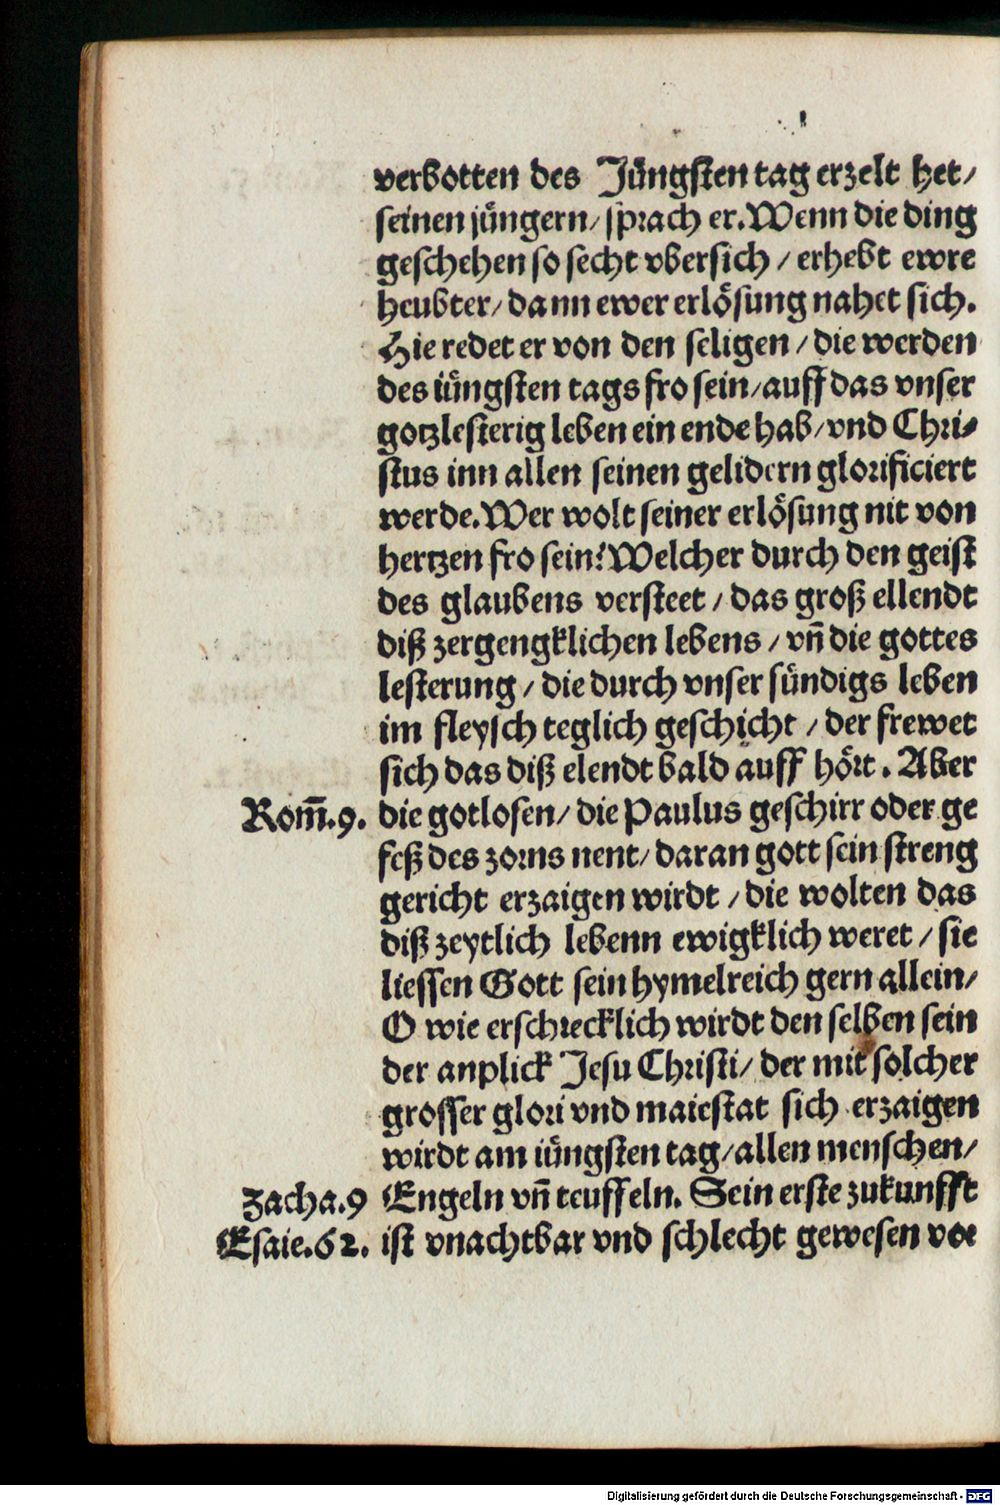 verbotten des Jüngsten tag erzelt het/
seinen jüngern/ sprach er. Wenn die ding
geschehen so secht vbersich / erhebt ewre
heubter/ dann ewer erlösung nahet sich.
Hie redet er von den seligen / die werden
des iüngsten tags fro sein/ auff das vnser
gotzlesterig leben ein ende hab/ vnd Chri-
stus inn allen seinen gelidern glorificiert
werde. Wer wolt seiner erlösung nit von
hertzen fro sein? Welcher durch den geist
des glaubens versteet / das groß ellendt
diß zergengklichen lebens / vn̄ die gottes
lesterung / die durch vnser sündigs leben
im fleysch teglich geschicht / der frewet
sich das diß elendt bald auff hört. Aber
Rom̄.9. die gotlosen/ die Paulus geschirr oder ge
feß des zorns nent/ daran gott sein streng
gericht erzaigen wirdt / die wolten das
diß zeytlich lebenn ewigklich weret / sie
liessen Gott sein hymelreich gern allein/
O wie erschrecklich wirdt den selben sein
der anplick Jesu Christi/ der mit solcher
grosser glori vnd maiestat sich erzaigen
wirdt am iüngsten tag/ allen menschen/
Zacha.9 Engeln vn̄ teuffeln. Sein erste zukunfft
Esaie.62. ist vnachtbar vnd schlecht gewesen vor
Digitalisierung gefördert durch die Deutsche Forschungsgemeinschaft - DFG